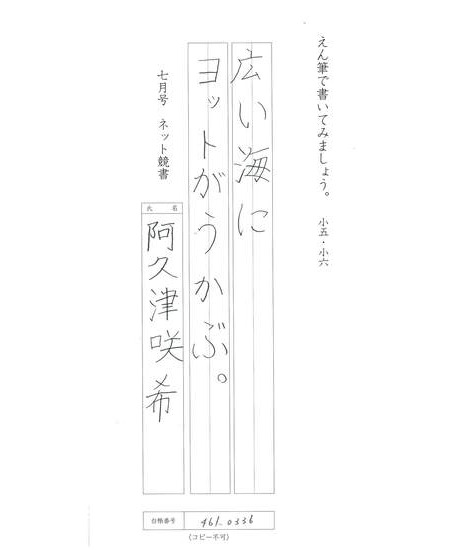 えん筆で書いてみましょう。 小五・小六
広い海に
ヨットがうかぶ。
七月号 ネット競書
氏名
阿久津咲希
台帳番号 461-0336
(コピー不可)